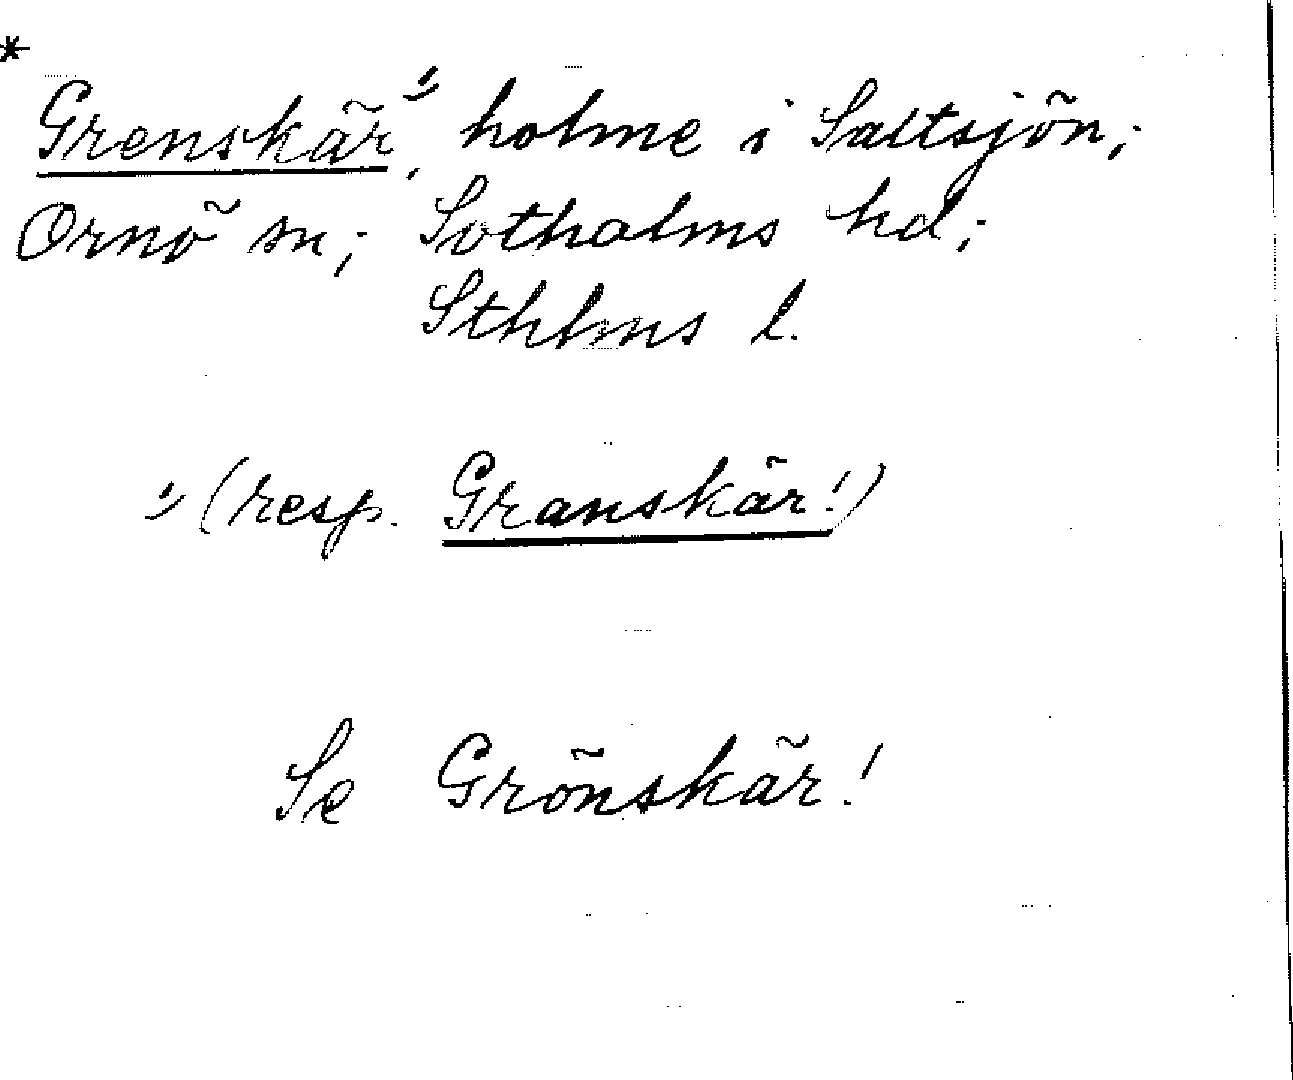 *
Grenskär ¹⁾, holme i Saltsjön;
Ornö sn; Sotholms hd;
Sthlms l.
¹⁾ (resp. Granskär!)
Se Grönskär!